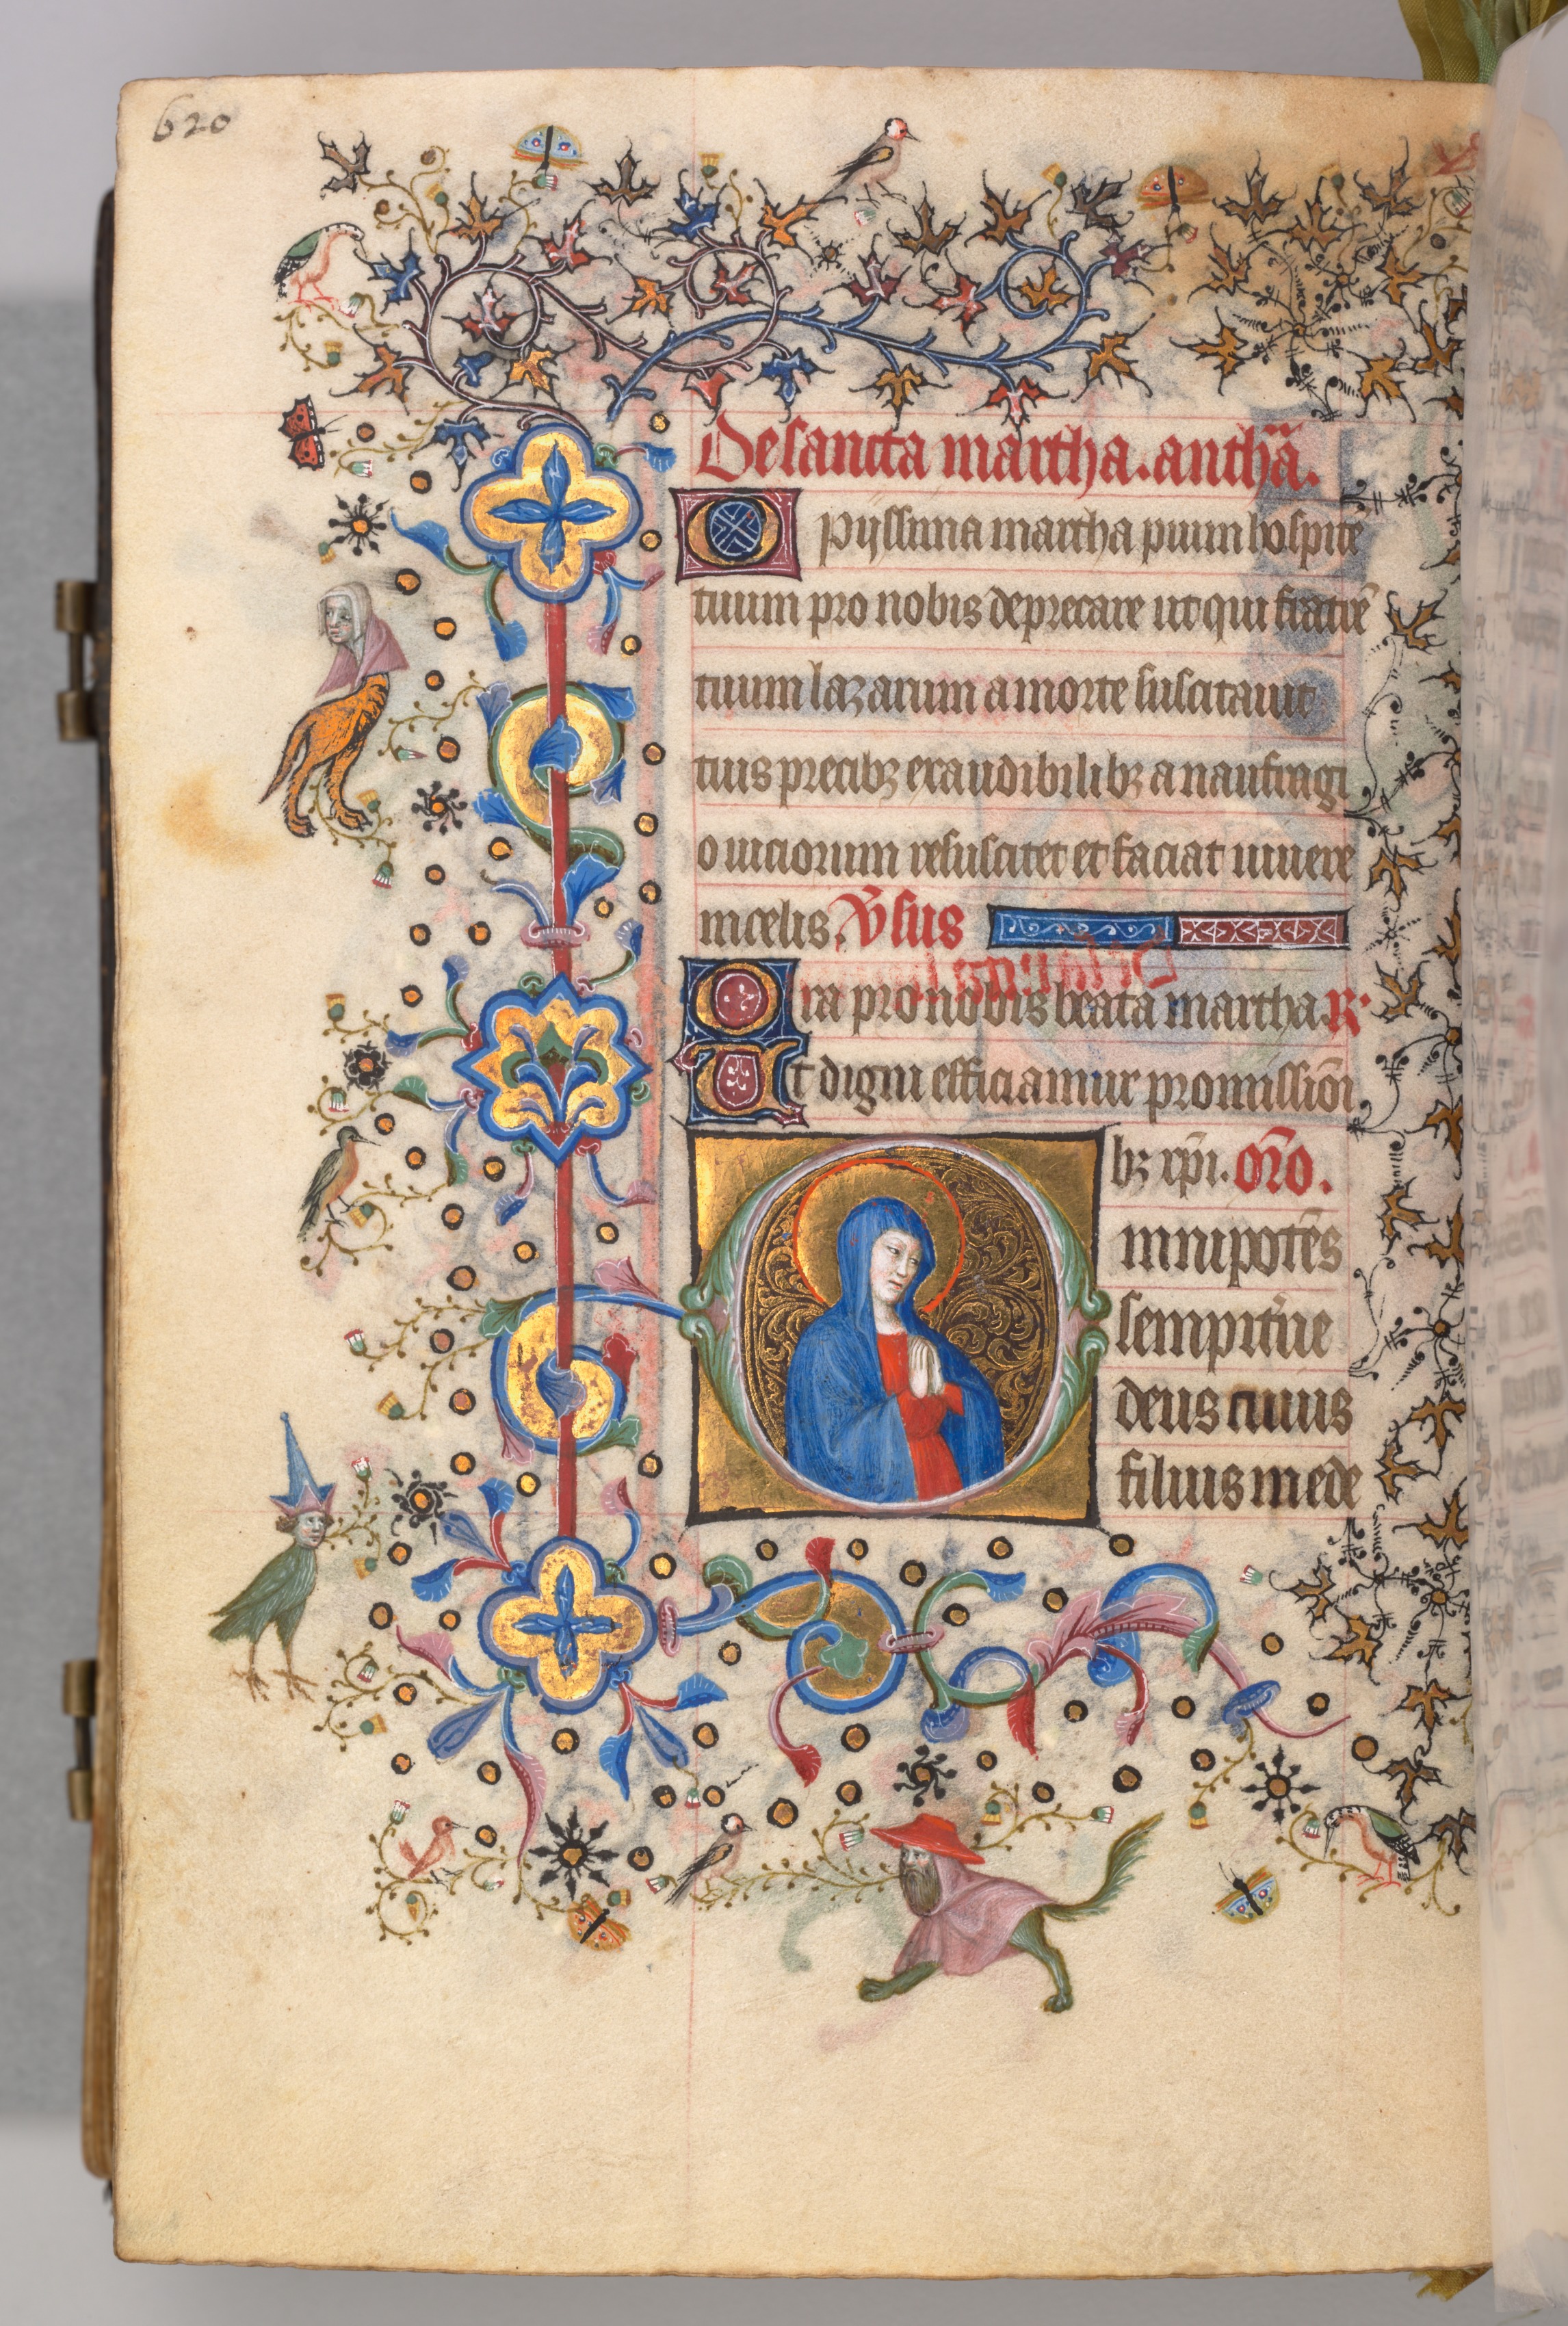 620
De sancta martha. anth̄a.
O pijssima martha pium hospitē
tuum pro nobis deprecare ut qui fratrē
tuum lazarum a morte suscitauit
tuis precibꝫ exaudibilibꝫ a naufragi
o uiciorum resuscitet et faciat uiuere
in celis. v̄sus
Ora pro nobis beata martha R.
Ut digni efficiamur promissiōi
bꝫ xp̄i. or̄o.
Omnipotēs
sempit̄ne
deus cuius
filius in ede